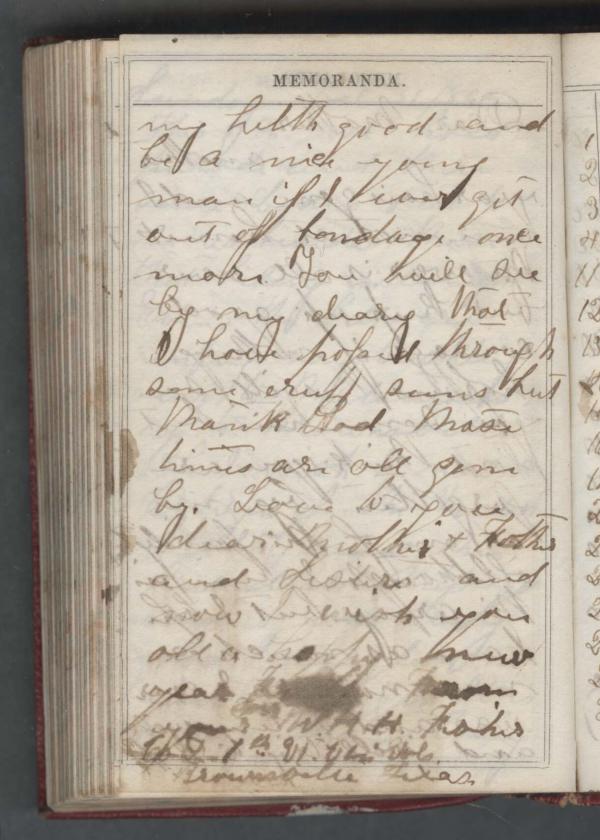 MEMORANDA.
my helth good and
be a nice young
man if I ever get
out of bondage once
more. You will see
by my diary that
I have passed through
some cruel seens but
thank God those
times are all gone
by. Love to you
dear Mother & Father
and Sisters and
now I wish you
all a happy new
year from
your W. H. H. Fisher
Co 1st Vols
Brownsville Texas
1
2
3
4
11
12
13